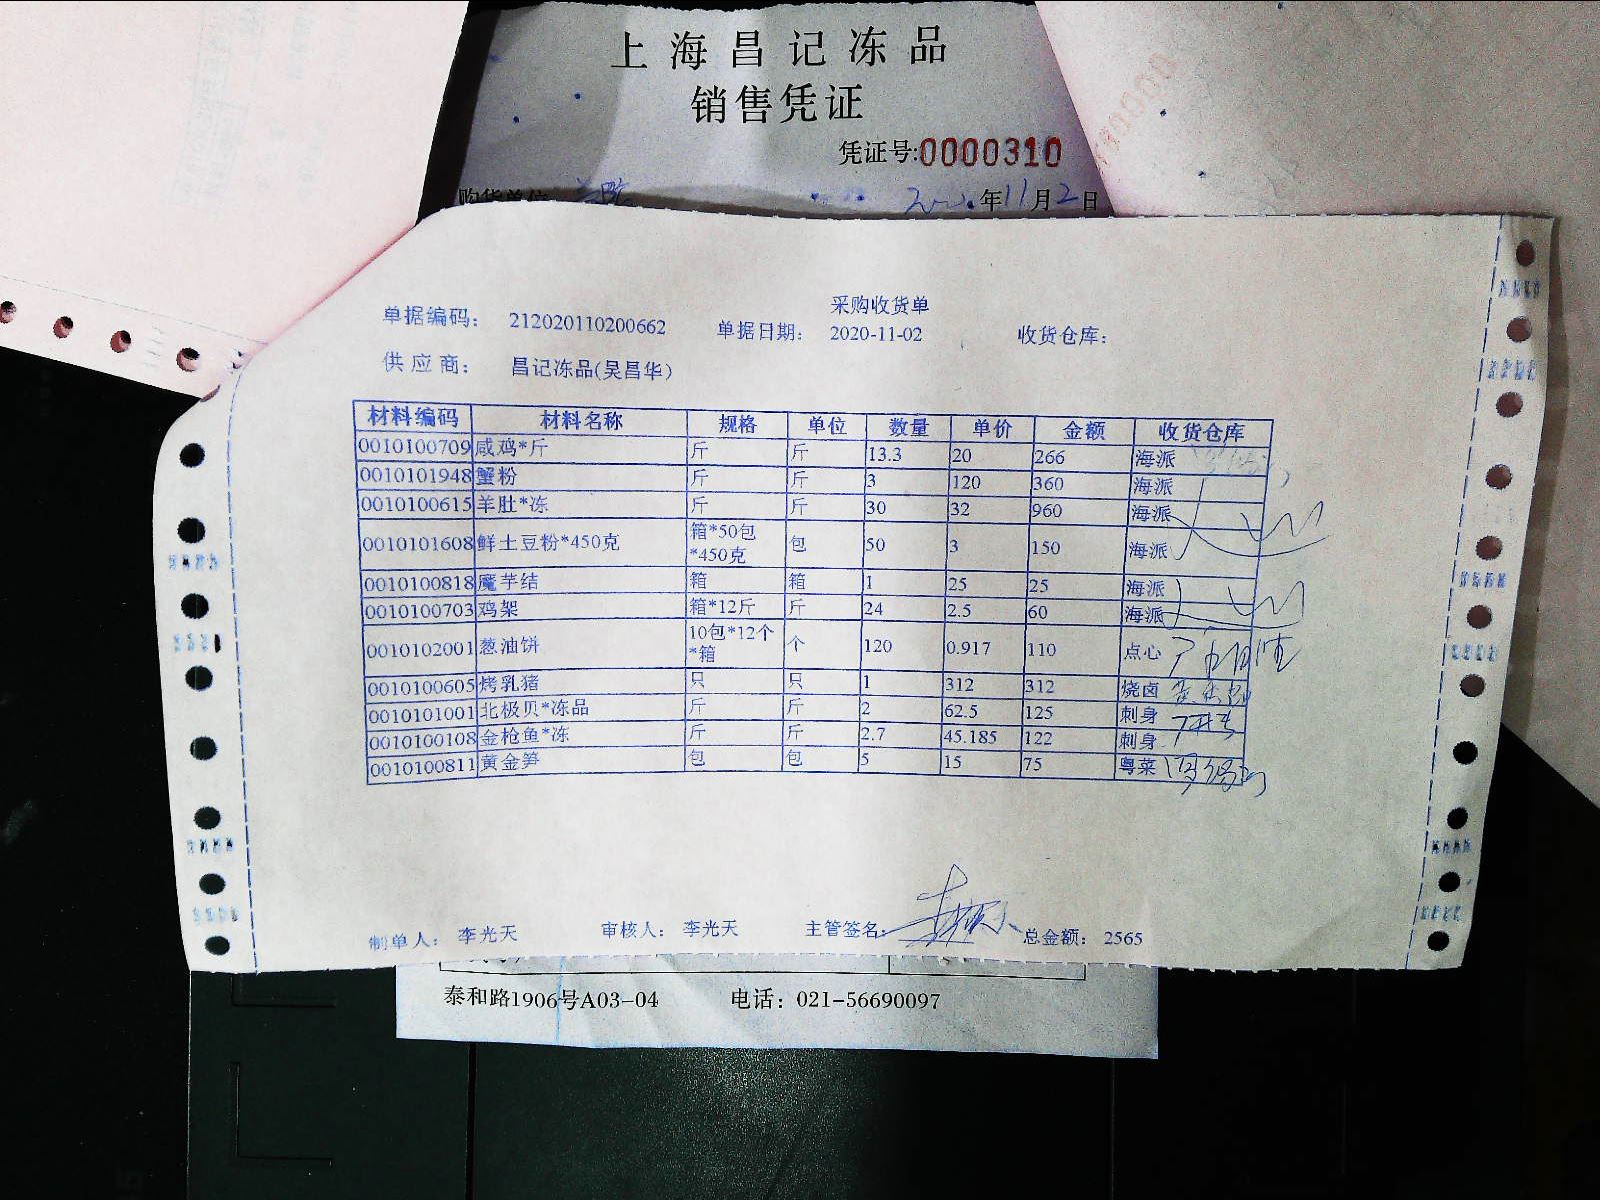 上海昌记冻品
销售凭证
凭证号:0000310
购货单位 年11月2日
采购收货单
单据编码： 212020110200662 单据日期： 2020-11-02 收货仓库：
供应商： 昌记冻品(吴昌华)
材料编码 材料名称 规格 单位 数量 单价 金额 收货仓库
0010100709 咸鸡*斤 斤 斤 13.3 20 266 海派
0010101948 蟹粉 斤 斤 3 120 360 海派
0010100615 羊肚*冻 斤 斤 30 32 960 海派
0010101608 鲜土豆粉*450克 箱*50包*450克 包 50 3 150 海派
0010100818 魔芋结 箱 箱 1 25 25 海派
0010100703 鸡架 箱*12斤 斤 24 2.5 60 海派
0010102001 葱油饼 10包*12个*箱 个 120 0.917 110 点心
0010100605 烤乳猪 只 只 1 312 312 烧卤
0010101001 北极贝*冻品 斤 斤 2 62.5 125 刺身
0010100108 金枪鱼*冻 斤 斤 2.7 45.185 122 刺身
0010100811 黄金笋 包 包 5 15 75 粤菜
制单人： 李光天 审核人： 李光天 主管签名： 总金额： 2565
泰和路1906号A03-04 电话：021-56690097